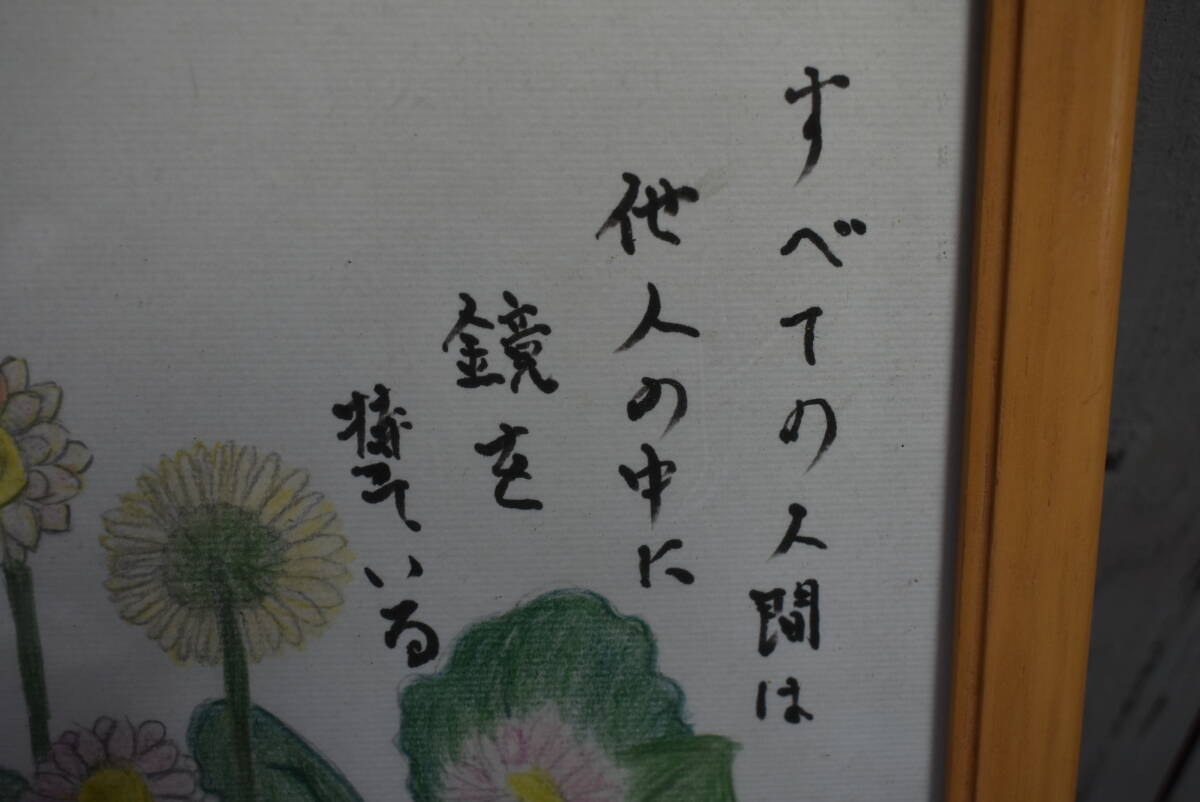 すべての人間は
他人の中に
鏡を
持っている